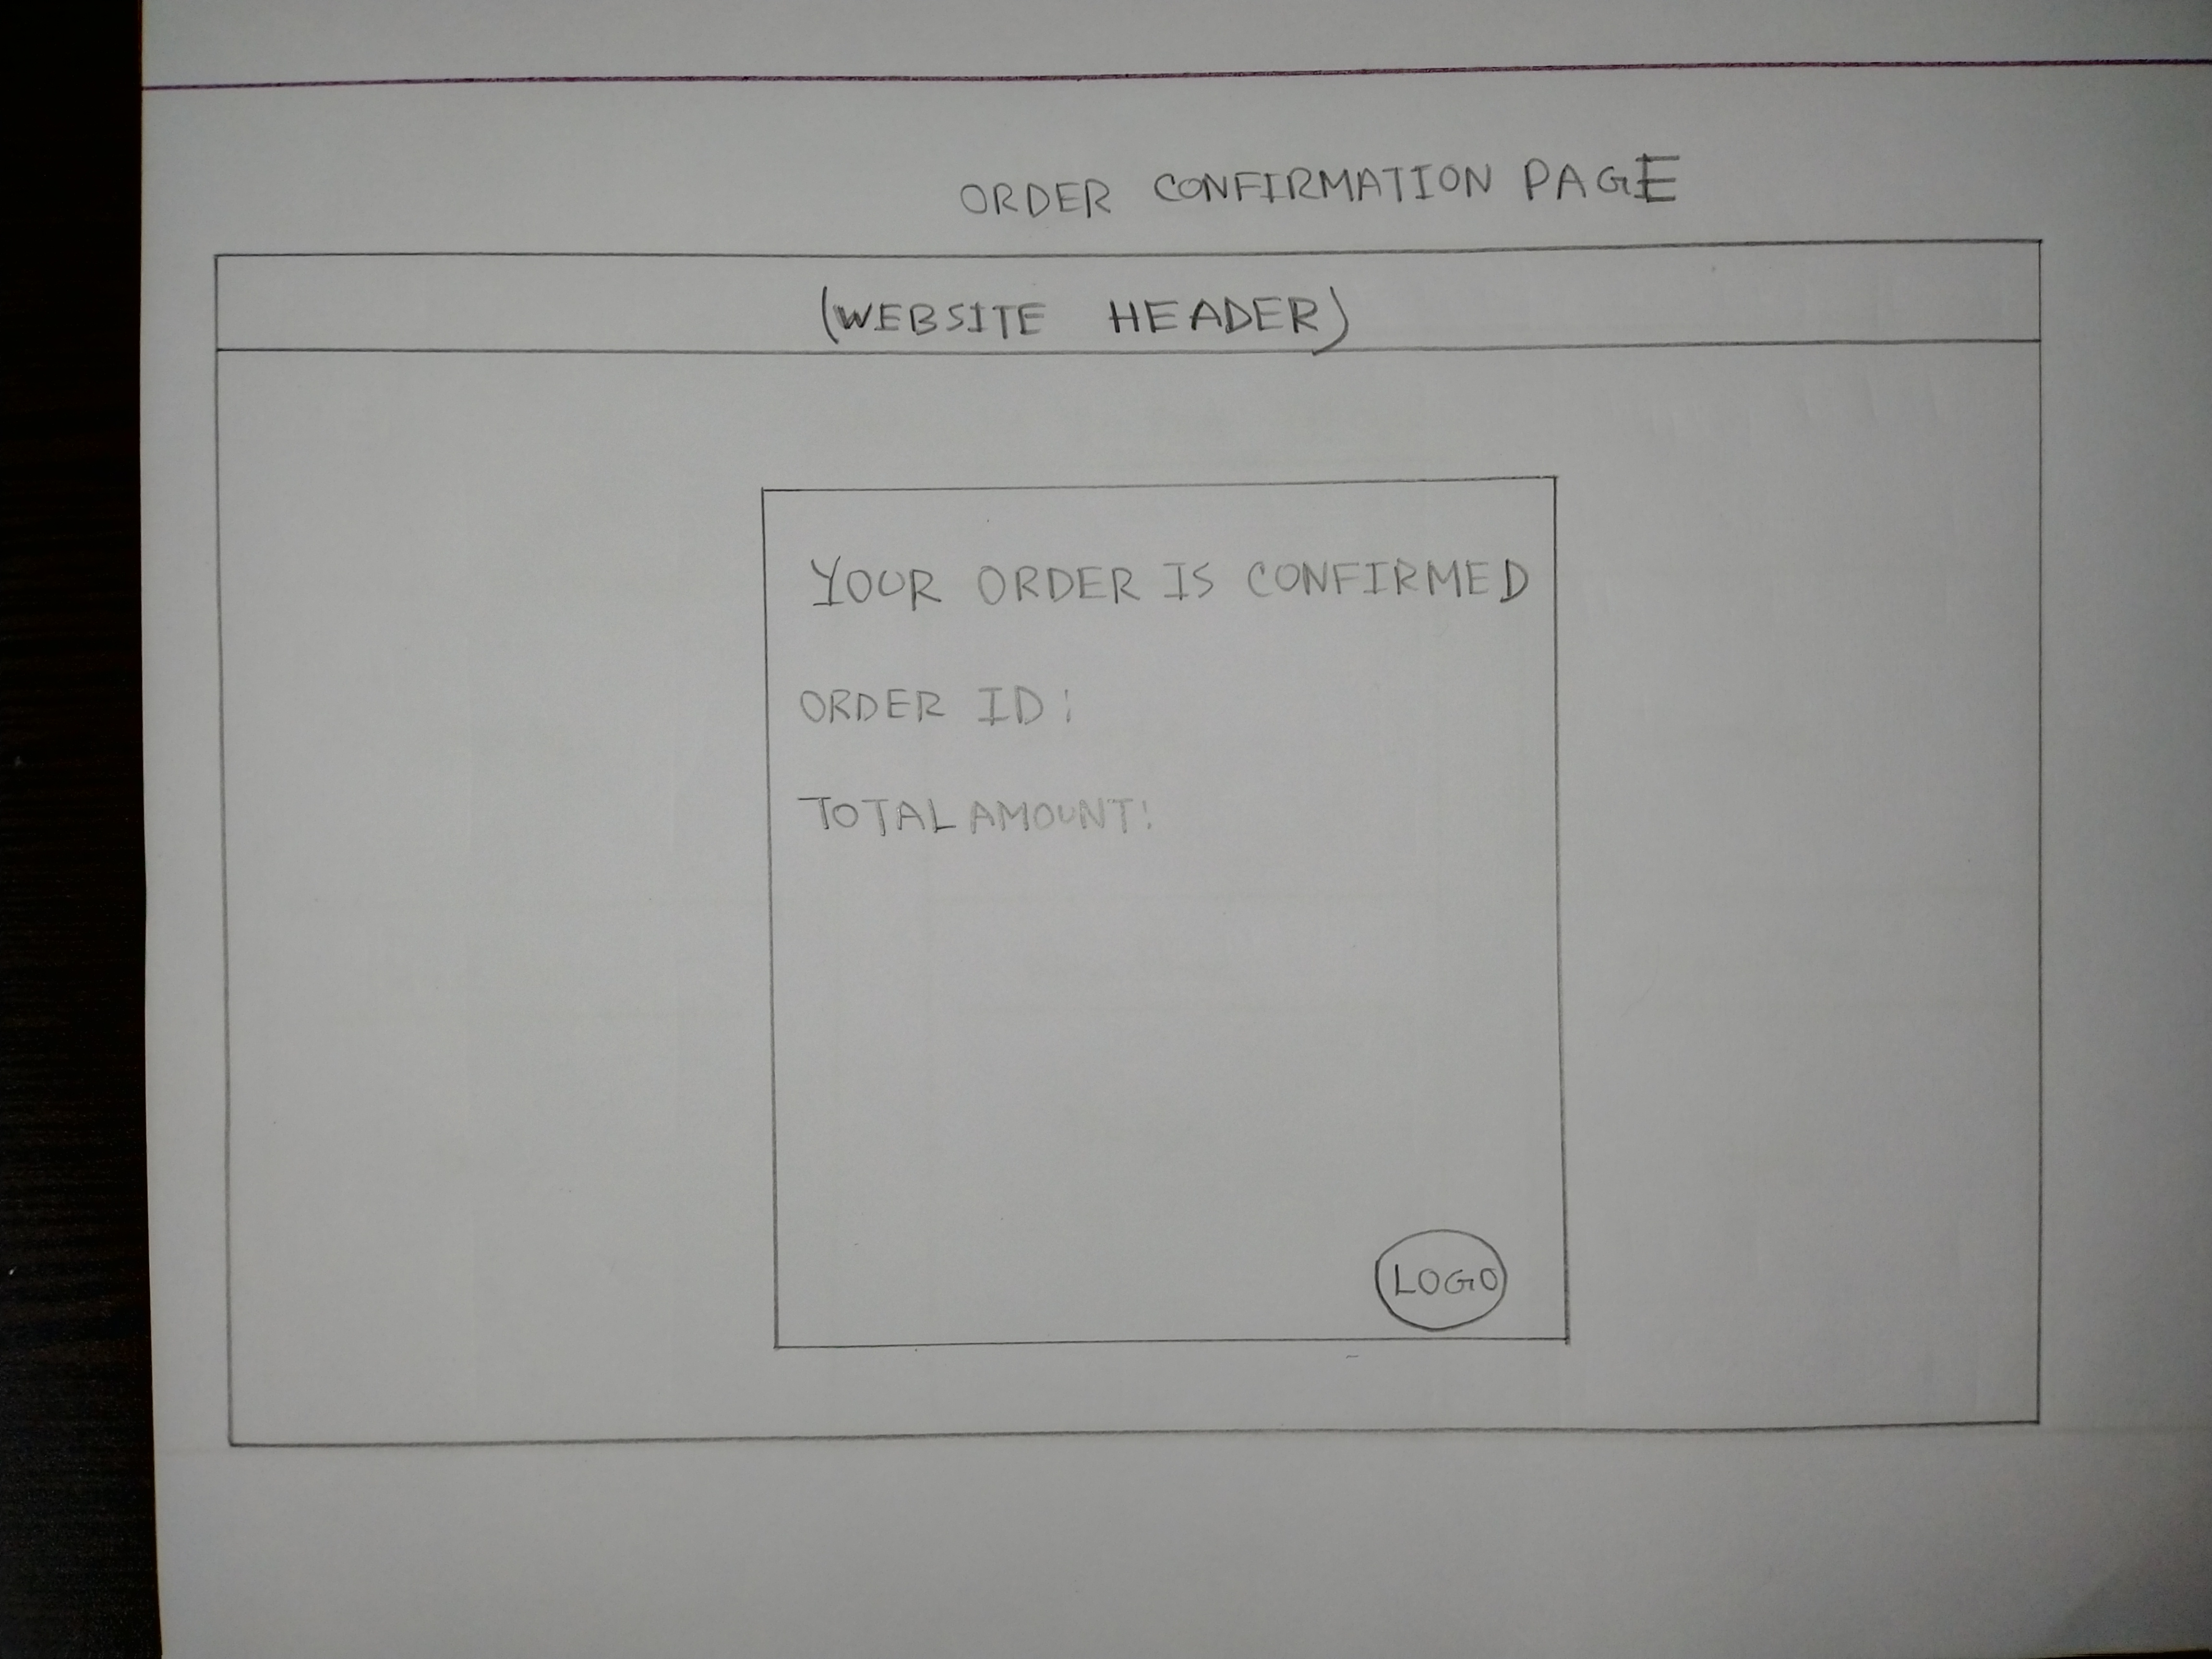 ORDER CONFIRMATION PAGE
(WEBSITE HEADER)
YOUR ORDER IS CONFIRMED
ORDER ID:
TOTAL AMOUNT:
LOGO